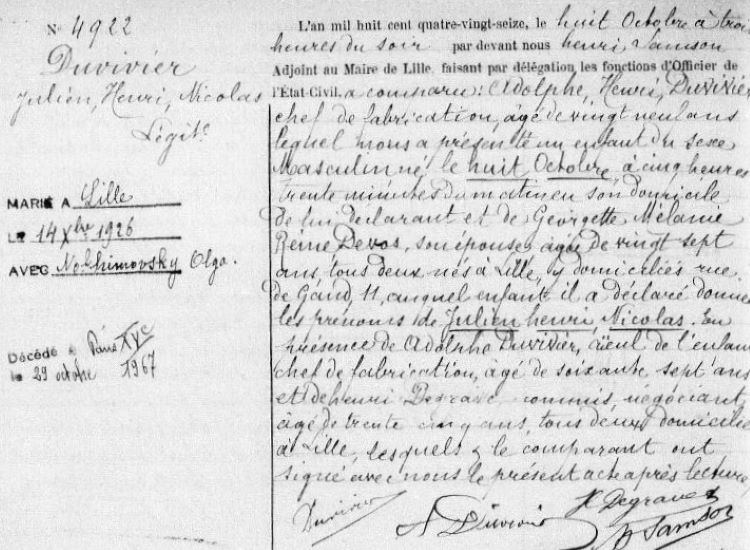 N° 4922
Duvivier
Julien, Henri, Nicolas
Légit.e
MARIÉ A Lille
LE 14 Xbre 1926
AVEC Nolchimovsky Olga.
Décédé à Paris XVe
le 29 octobre 1967
L'an mil huit cent quatre-vingt-seize, le huit Octobre à trois
heures du soir par devant nous henri, Samson
Adjoint au Maire de Lille, faisant par délégation les fonctions d'Officier de
l'État-Civil, a comparu: Adolphe, Henri, Duvivier
chef de fabrication, âgé de vingt neuf ans
lequel nous a présenté un enfant du sexe
Masculin né le huit Octobre, à cinq heures
trente minutes du matin en son domicile
de lui déclarant et de Georgette Mélanie
Reine Devos, son épouse, âgée de vingt sept
ans, tous deux nés à Lille, y domiciliés rue
de Gand 11, auquel enfant il a déclaré donner
les prénoms de Julien henri, Nicolas. En
présence de Adolphe Duvivier, aïeul de l'enfant
chef de fabrication, âgé de soixante sept ans
et de henri Degrave commis négociant,
âgé de trente cinq ans, tous deux domiciliés
à Lille, lesquels & le comparant ont
signé avec nous le présent acte après lecture
Duvivier
A Duvivier
H Degrave
H Samson